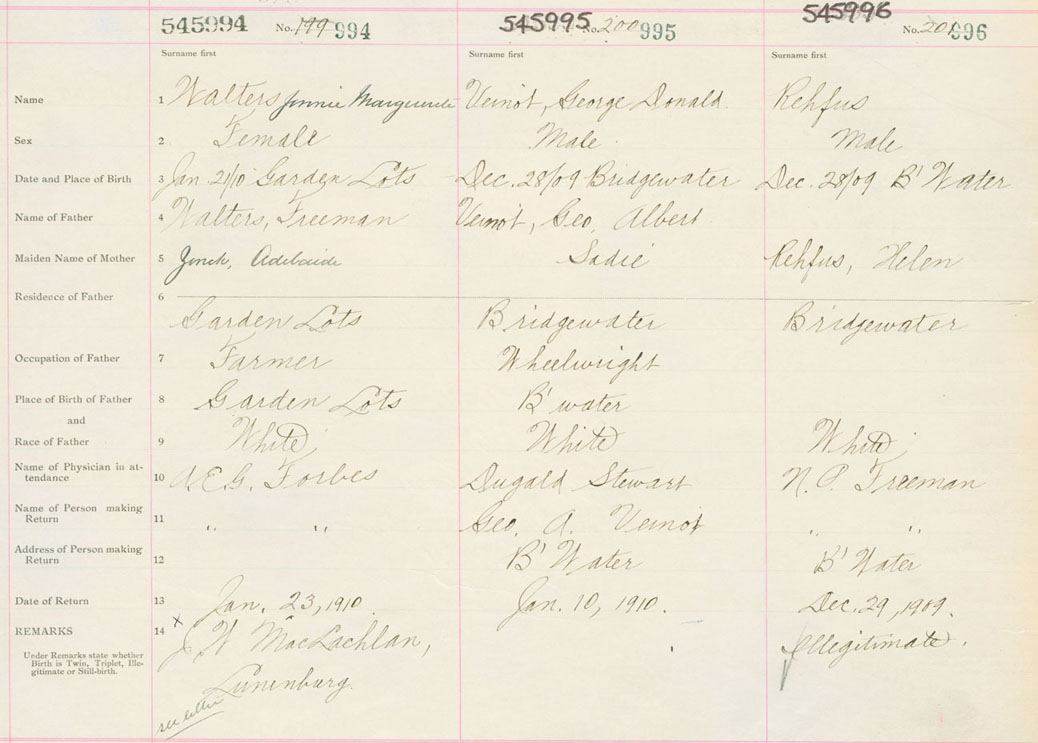 545994 No. 199 994 545995 No. 200 995 545996 No. 201 996
Surname first Surname first Surname first
Name 1 Walters Jennie Marguerite Veinot, George Donald Rehfus
Sex 2 Female Male Male
Date and Place of Birth 3 Jan. 21/10 Garden Lots Dec. 28/09 Bridgewater Dec. 28/09 B' Water
Name of Father 4 Walters, Freeman Veinot, Geo. Albert
Maiden Name of Mother 5 Zinck, Adelaide Sadie Rehfus, Helen
Residence of Father 6
Garden Lots Bridgewater Bridgewater
Occupation of Father 7 Farmer Wheelwright
Place of Birth of Father 8 Garden Lots B' water
and
Race of Father 9 White White White
Name of Physician in at-
tendance 10 A.E.G. Forbes Dugald Stewart N. P. Freeman
Name of Person making
Return 11 " " Geo. A. Veinot " "
Address of Person making
Return 12 B' Water B' Water
Date of Return 13 Jan. 23, 1910 Jan. 10, 1910. Dec. 29, 1909.
REMARKS 14 x J W MacLachlan, Illegitimate.
Under Remarks state whether
Birth is Twin, Triplet, Ille-
gitimate or Still-birth.
Lunenburg.
see letter